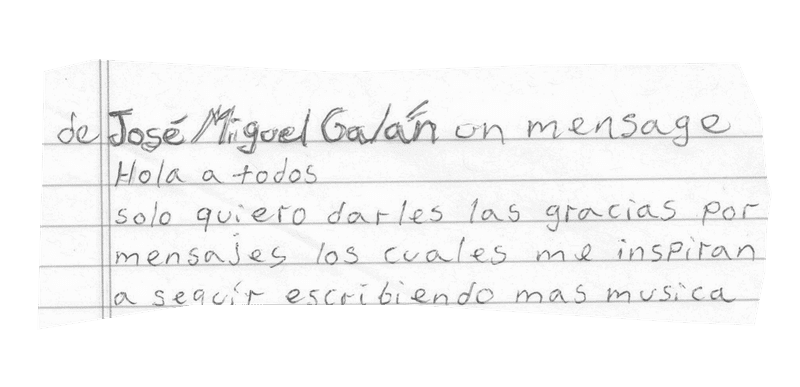 de José Miguel Galán un mensage
Hola a todos
solo quiero darles las gracias por
mensajes los cuales me inspiran
a seguir escribiendo mas musica